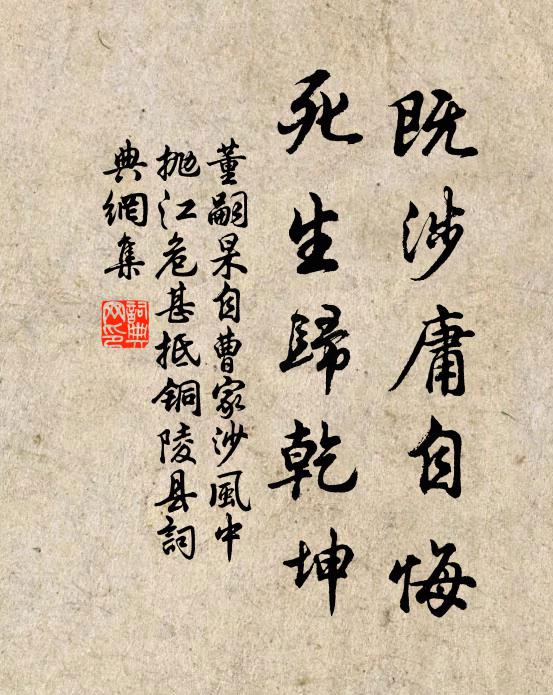 既涉庸自悔
死生歸乾坤
董嗣杲自曹家沙風中
拋江危甚抵铜陵县詞
典網集
詞典
网印